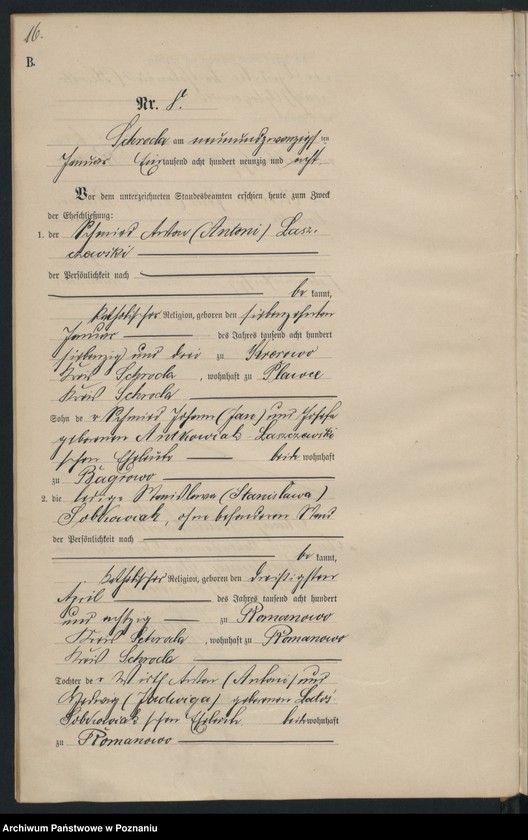 16.
B.
Nr. 8.
Schroda am neunundzwanzigsten
Januar Eintausend acht hundert neunzig und acht
Vor dem unterzeichneten Standesbeamten erschien heute zum Zweck
der Eheschließung:
1. der Schmied Anton (Antoni) Lasz-
czewski
der Persönlichkeit nach
be kannt,
katholischer Religion, geboren den siebenzehnten
Januar des Jahres tausend acht hundert
siebenzig und drei zu
Kreis Schroda, wohnhaft zu Plawce
Kreis Schroda
Sohn der Schmied Johann (Jan) und Josefa
geborenen Antkowiak Laszczewski
schen Eheleute beide wohnhaft
zu Bagrowo
2. die ledige Stanislawa (Stanisława)
Sobkowiak, ohne besonderen Stand
der Persönlichkeit nach
be kannt,
katholischer Religion, geboren den dreißigsten
April des Jahres tausend acht hundert
und achtzig zu Romanowo
Kreis Schroda, wohnhaft zu Romanowo
Kreis Schroda
Tochter der Wirth Anton (Antoni) und
Hedwig (Jadwiga) geborenen
Sobkowiak schen Eheleute beide wohnhaft
zu Romanowo
Archiwum Państwowe w Poznaniu